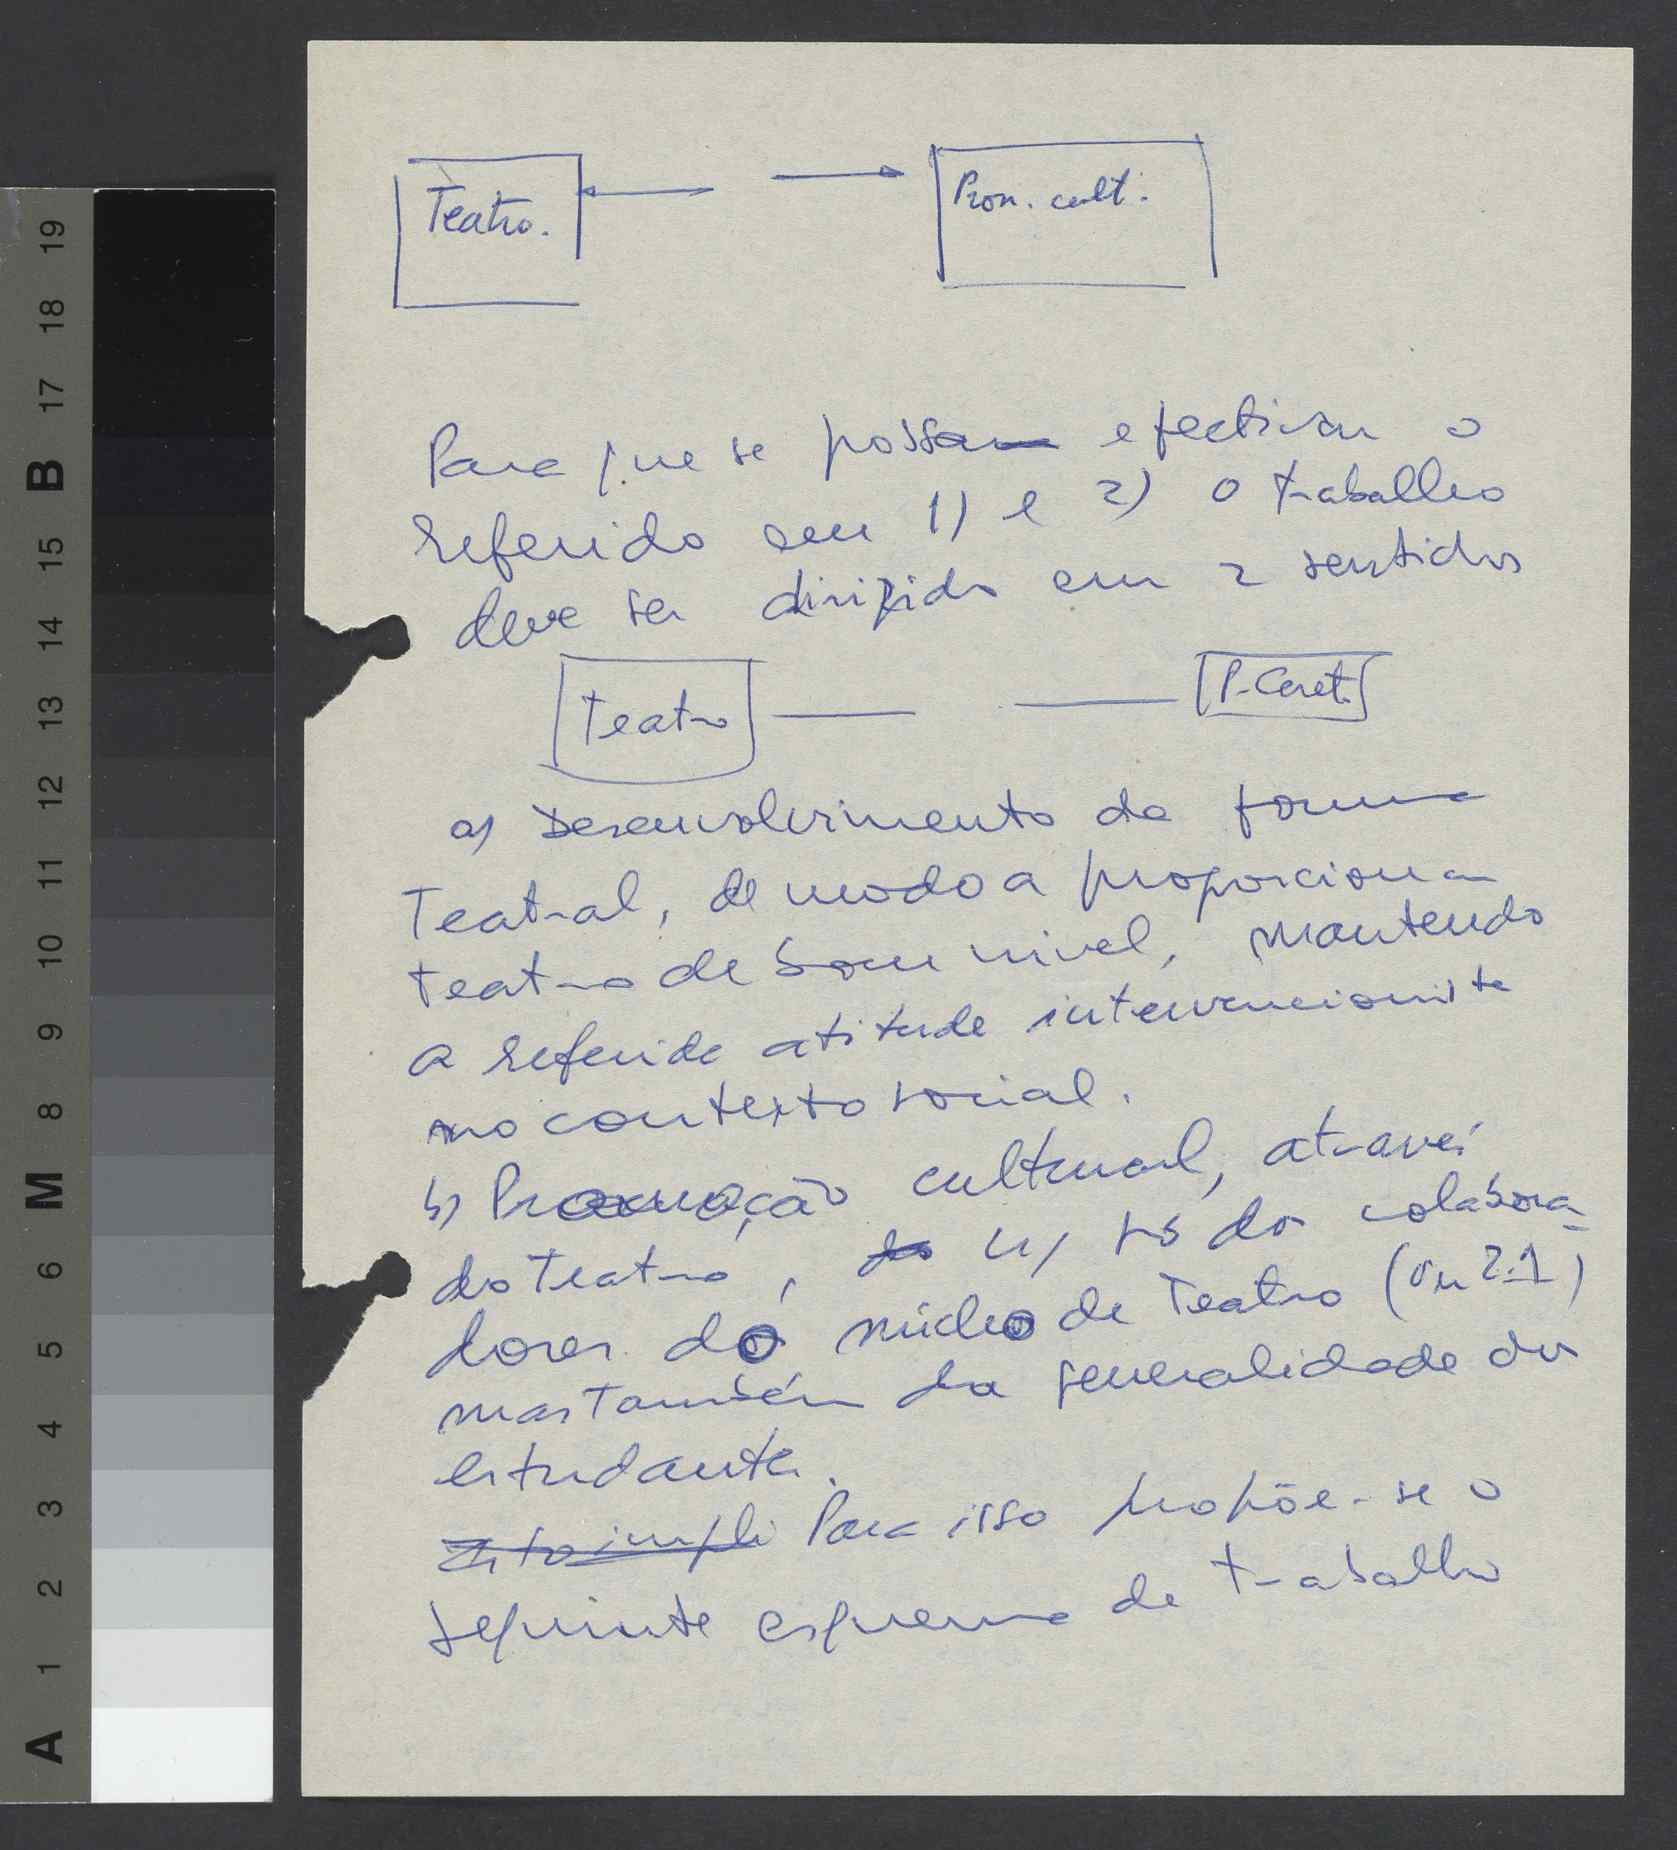 Teatro. Prom. cult.
Para que se possa efectivar o
referido em 1) e 2) o trabalho
deve ser dirigido em 2 sentidos
Teatro P. Cult.
a) Desenvolvimento da forma
Teatral, de modo a proporcionar
teatro de bom nivel, mantendo
a referida atitude intervencionista
no contexto social.
b) Promoção cultural, através
do Teatro, do n/ só dos colabora-
dores do núcleo de Teatro (ou 2.1)
mas também da generalidade dos
estudantes.
Isto impli Para isso propõe-se o
seguinte esquema de trabalho
19
18
17
B
15
14
13
12
11
10
9
8
M
6
5
4
3
2
1
A